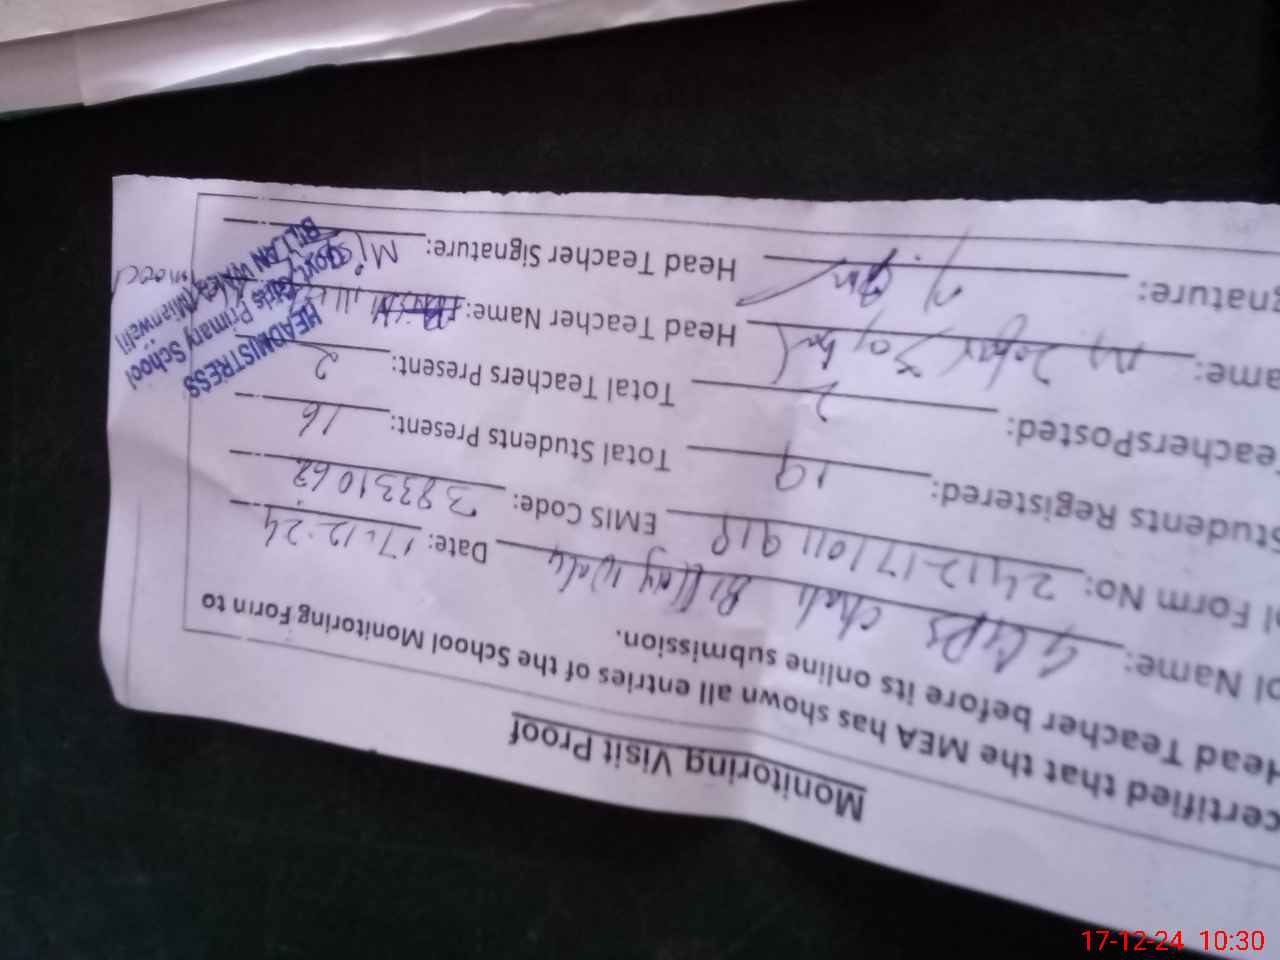 Monitoring Visit Proof
certified that the MEA has shown all entries of the School Monitoring Form to
Head Teacher before its online submission.
ol Name: GGPS Chah Wala Date: 17.12.24
l Form No: 2412-17/011918 EMIS Code: 38331062
Students Registered: 19 Total Students Present: 16
TeachersPosted: 2 Total Teachers Present: 2
ame: M Head Teacher Name:
gnature: Head Teacher Signature:
HEADMISTRESS
Govt. Girls Primary School
(Mianwali)
17-12-24 10:30